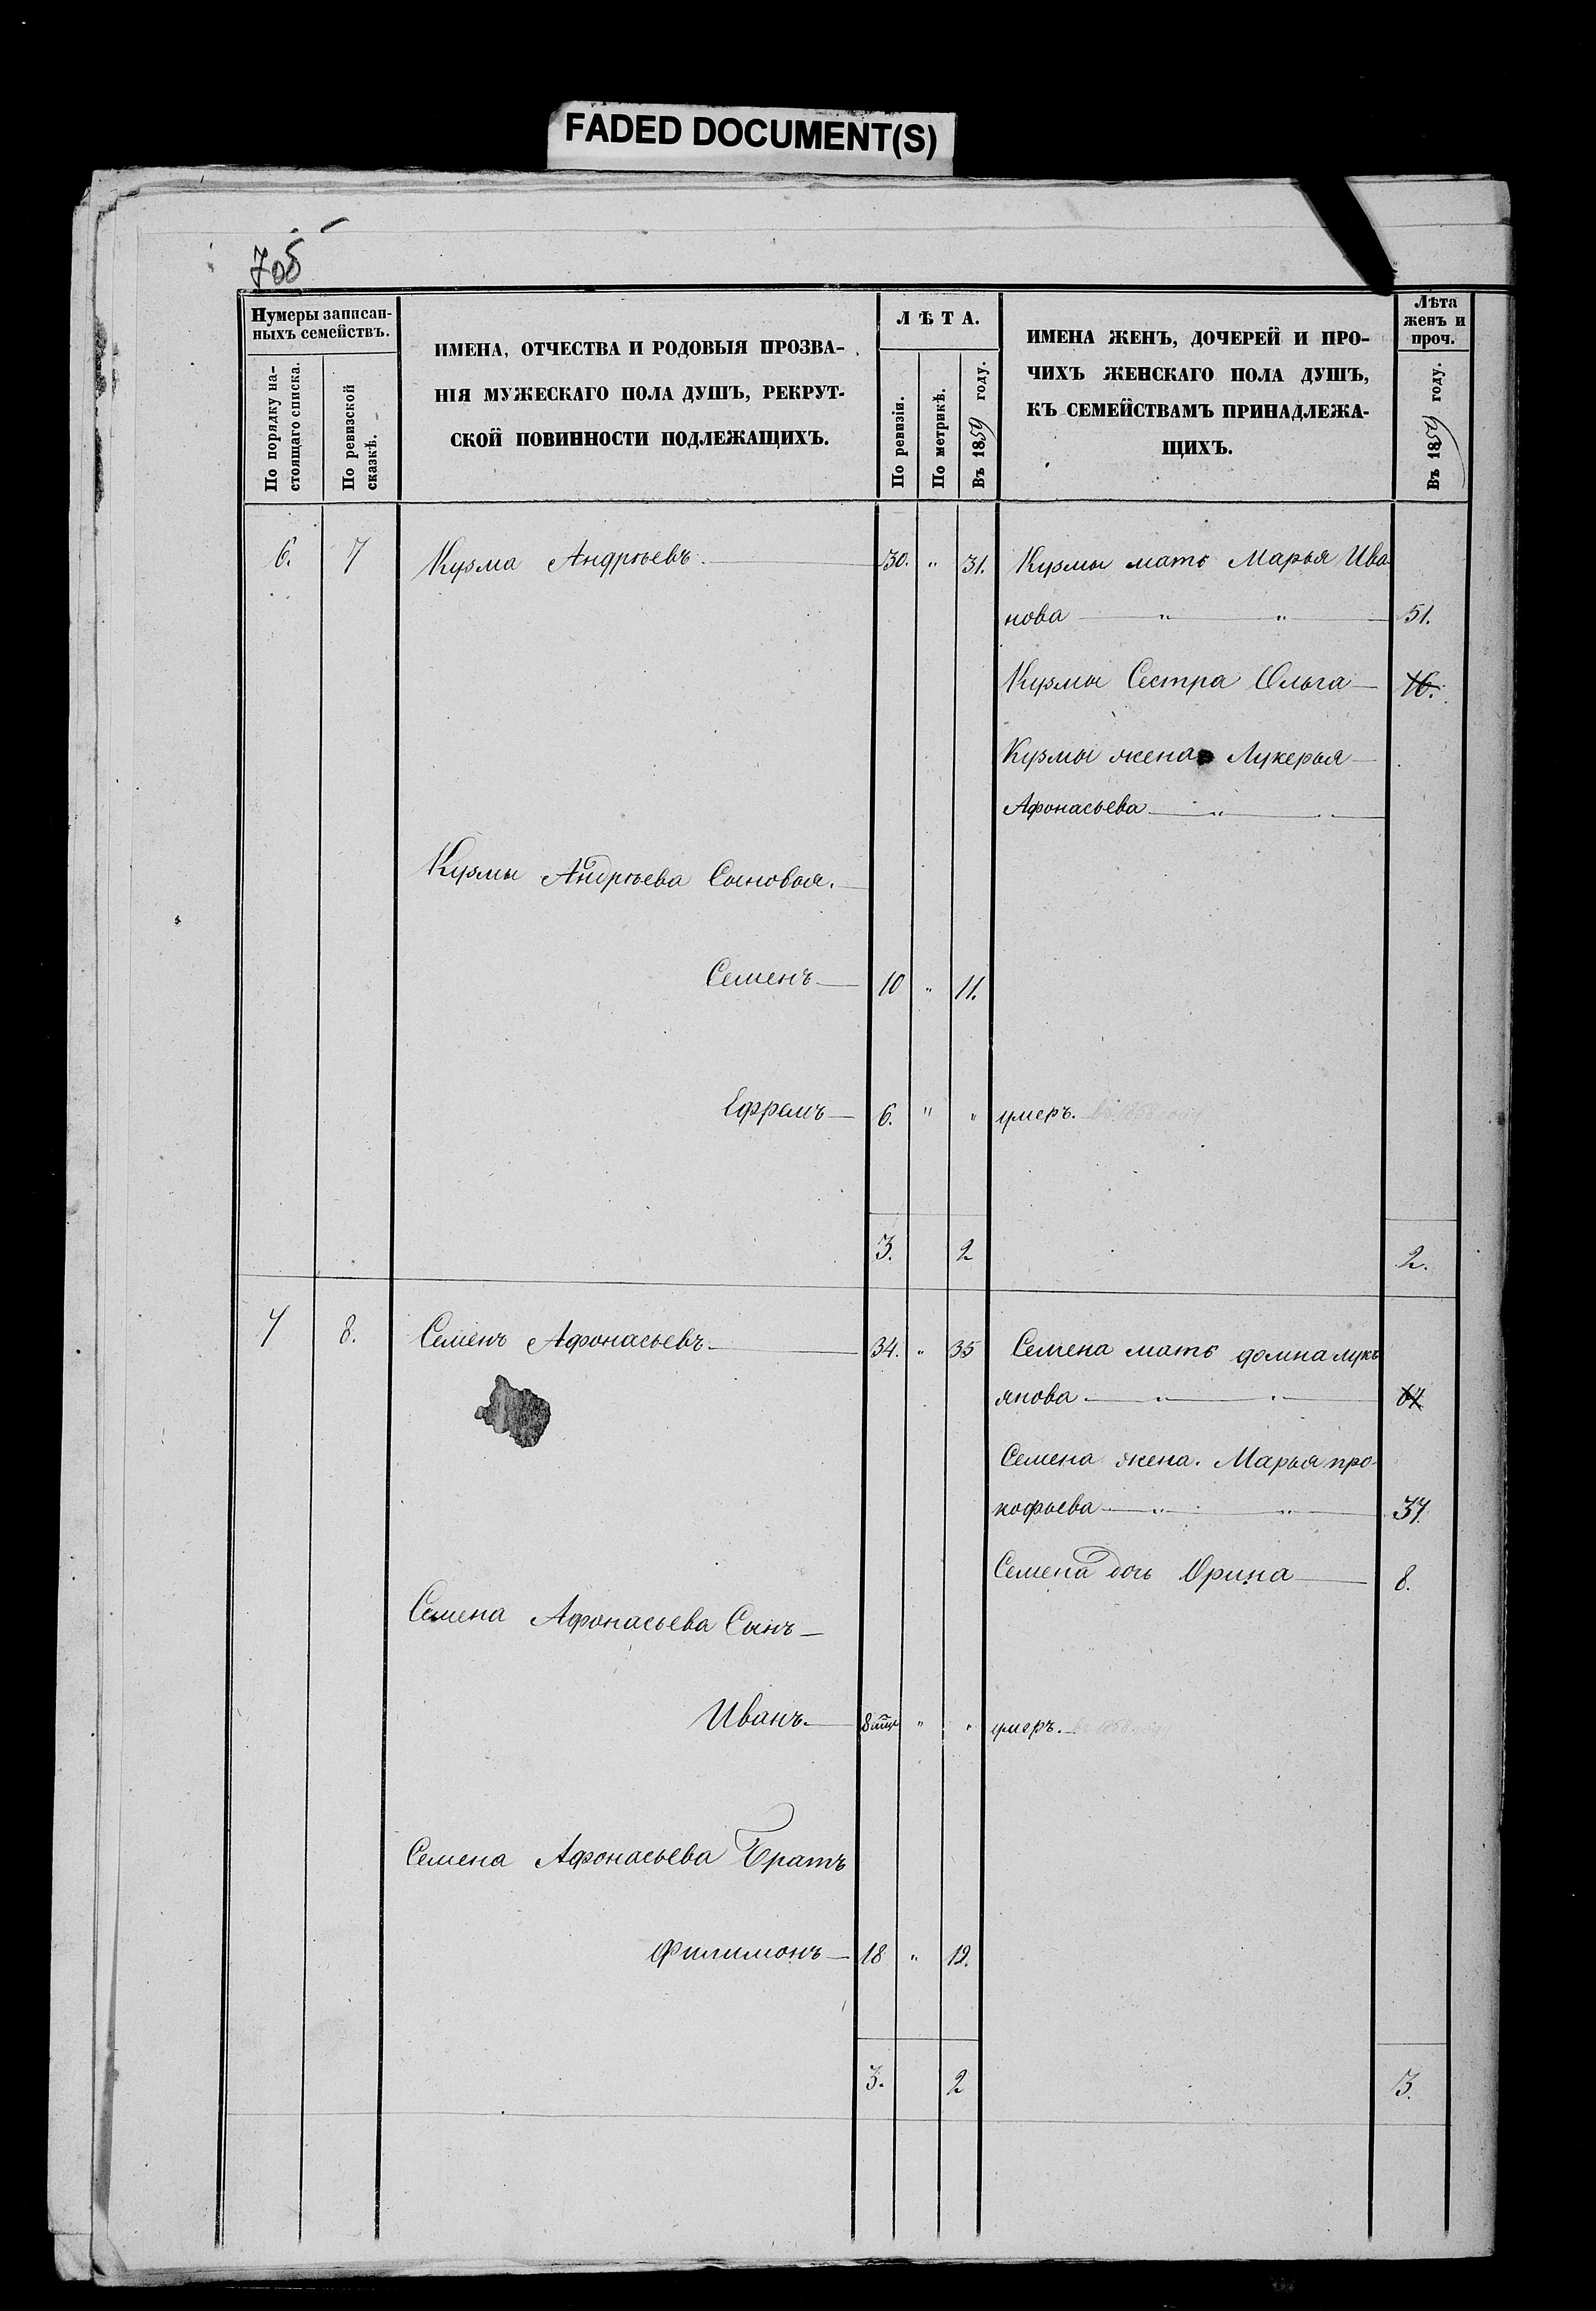 FADED DOCUMENT(S)
705
Нумеры записан-
ныхъ семействъ.
По порядку на-
стоящаго списка.
По ревизской
сказкѣ.
ИМЕНА, ОТЧЕСТВА И РОДОВЫЯ ПРОЗВА-
НІЯ МУЖЕСКАГО ПОЛА ДУШЪ, РЕКРУТ-
СКОЙ ПОВИННОСТИ ПОДЛЕЖАЩИХЪ.
ЛѢТА.
По ревизіи.
По метрикѣ.
Въ 1859 году.
ИМЕНА ЖЕНЪ, ДОЧЕРЕЙ И ПРО-
ЧИХЪ ЖЕНСКАГО ПОЛА ДУШЪ,
КЪ СЕМЕЙСТВАМЪ ПРИНАДЛЕЖА-
ЩИХЪ.
Лѣта
женъ и
проч.
Въ 1859 году.
6. 7 Кузма Андрѣевъ. 30. " 31. Кузмы мать Марья Ива-
нова " " 51.
Кузмы Сестра Ольга 16.
Кузмы жена Лукерья
Афонасьева "
Кузмы Андрѣева Сыновья.
Семенъ 10 " 11.
Ефремъ 6. " " умеръ. въ 1858
3. 2 2.
7 8. Семенъ Афонасьевъ 34. " 35 Семена мать домна лукъ
янова " "
Семена жена. Марья про-
кофьева " " 37.
Семена дочь Орина 8.
Семена Афонасьева Сынъ
Иванъ. 8 " " умеръ. въ 1858
Семена Афонасьева Братъ
Филимонъ 18 " 19.
3. 2 3.